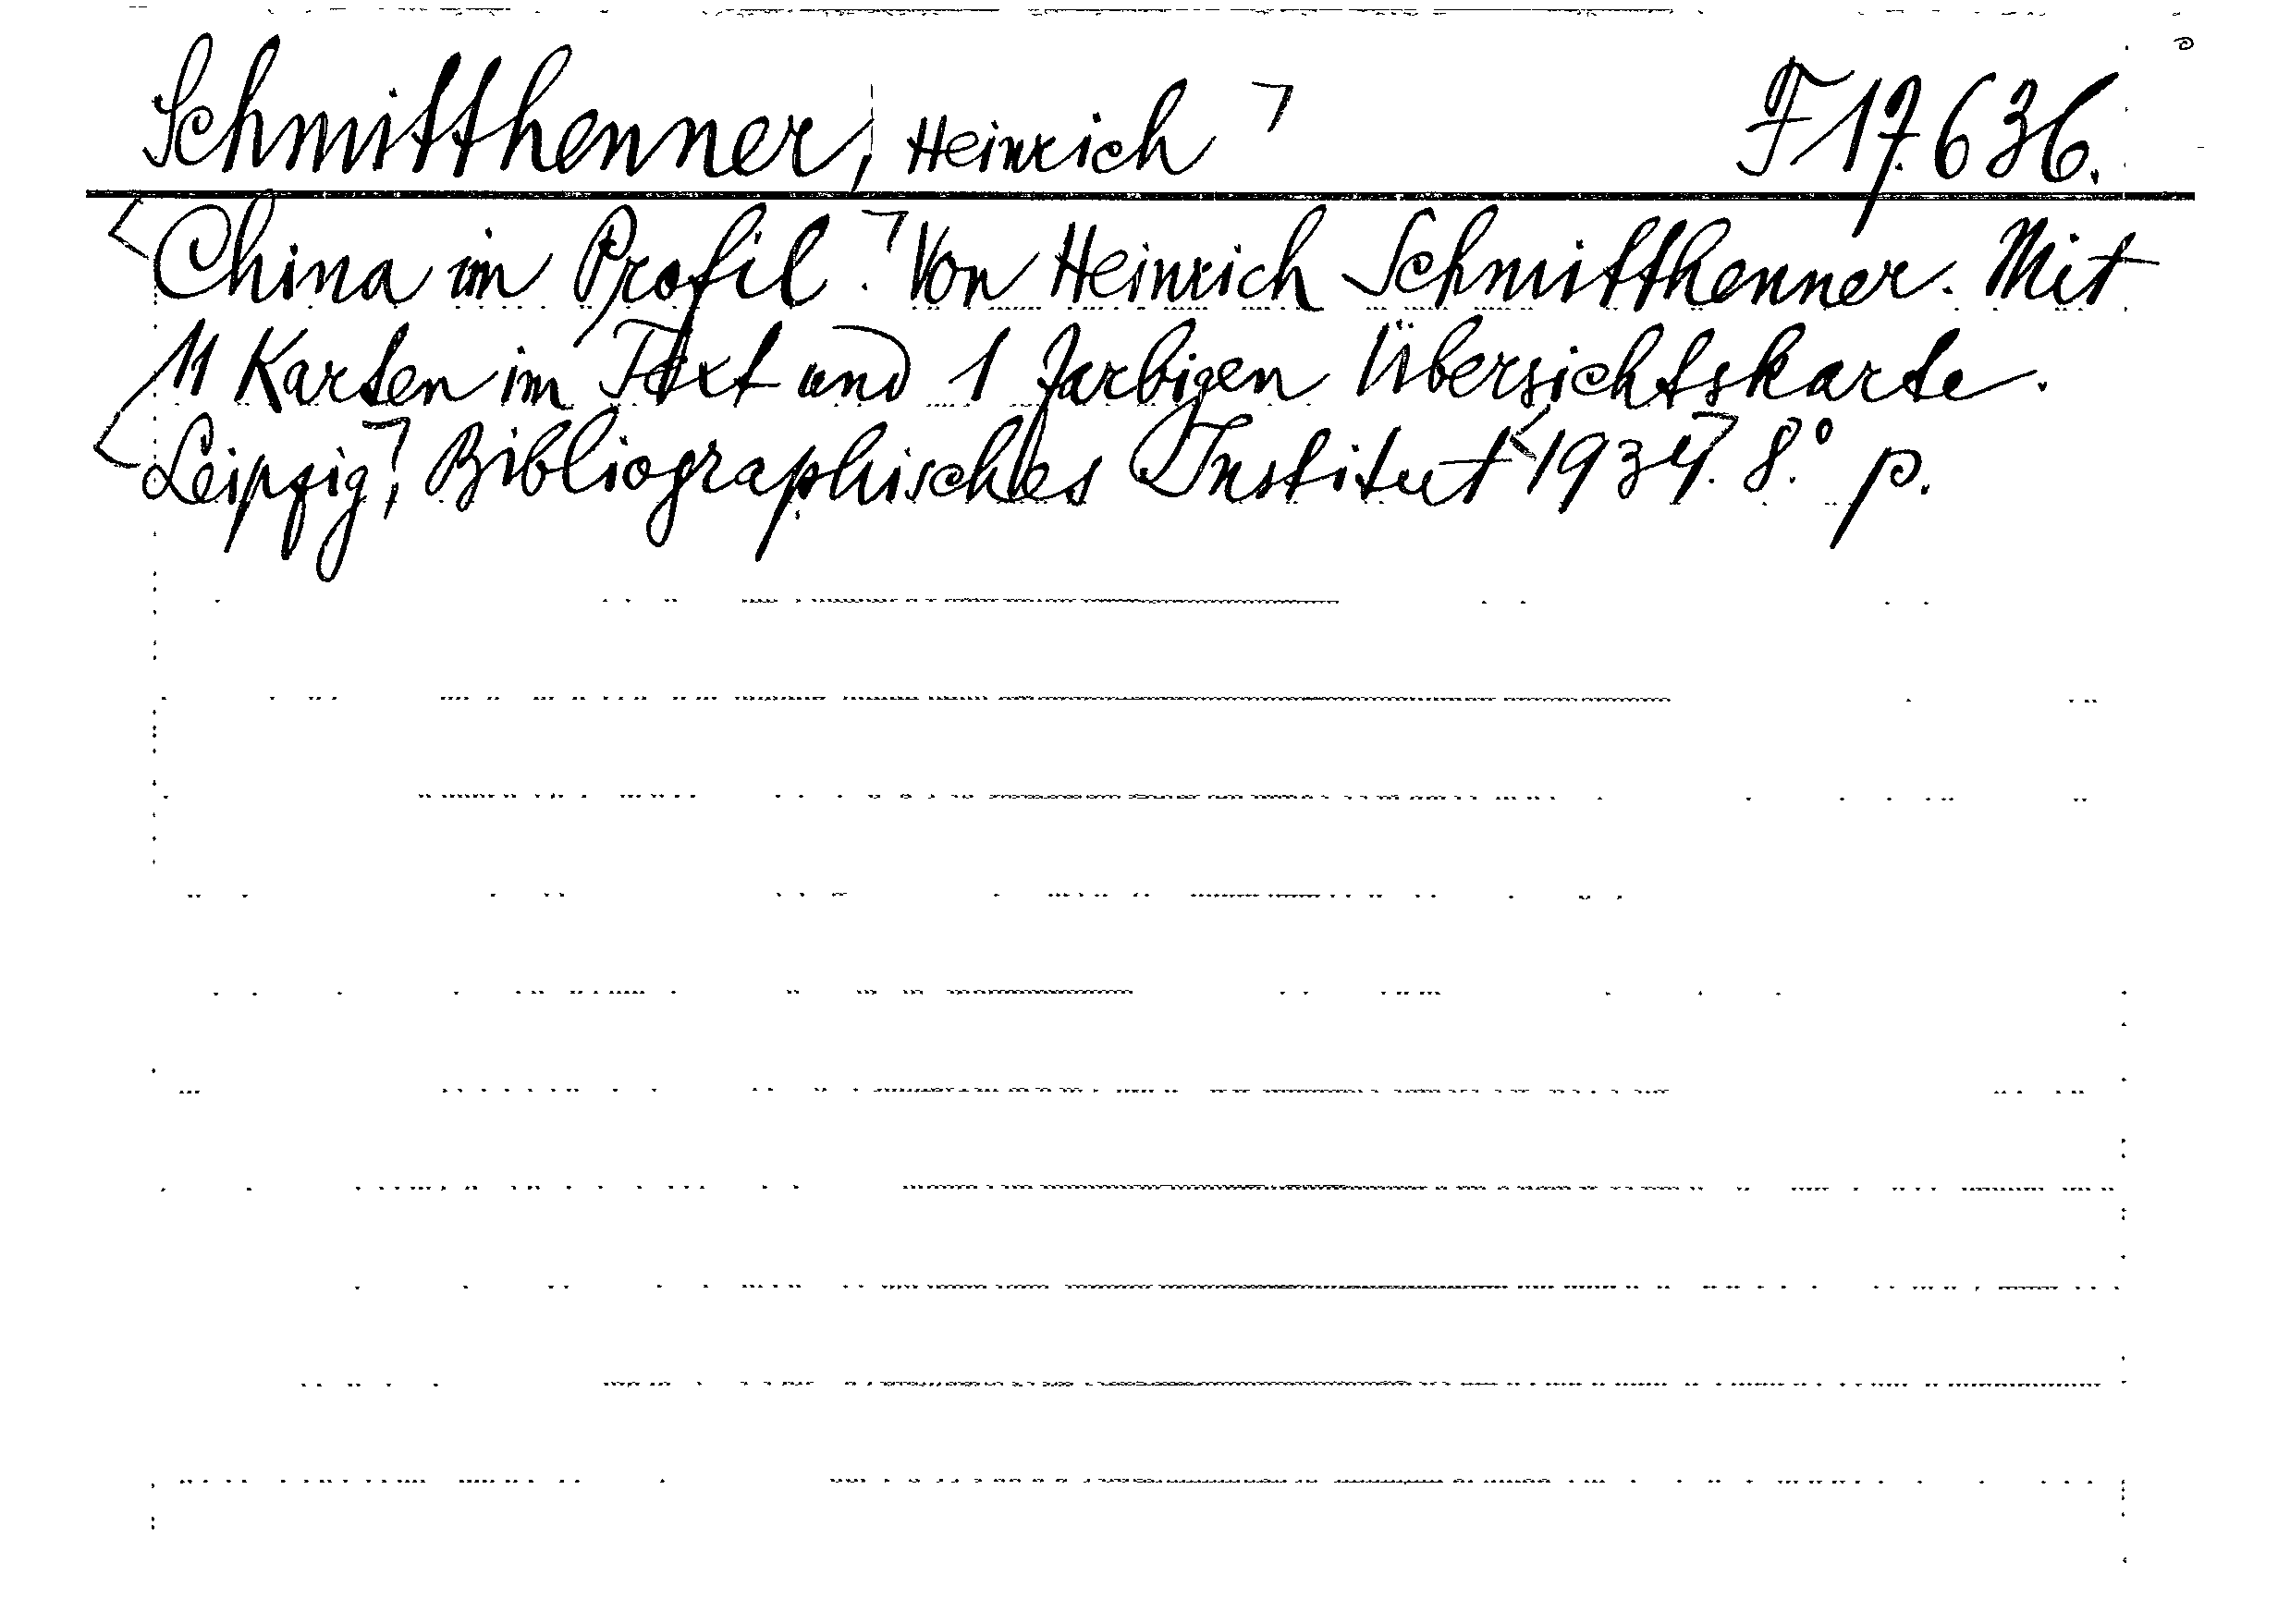 Schmitthenner, Heinrich F 17.636.
China im Profil. Von Heinrich Schmitthenner. Mit
11 Karten im Text und 1 farbigen Übersichtskarte.
Leipzig, Bibliographisches Institut 1934. 8.° p.